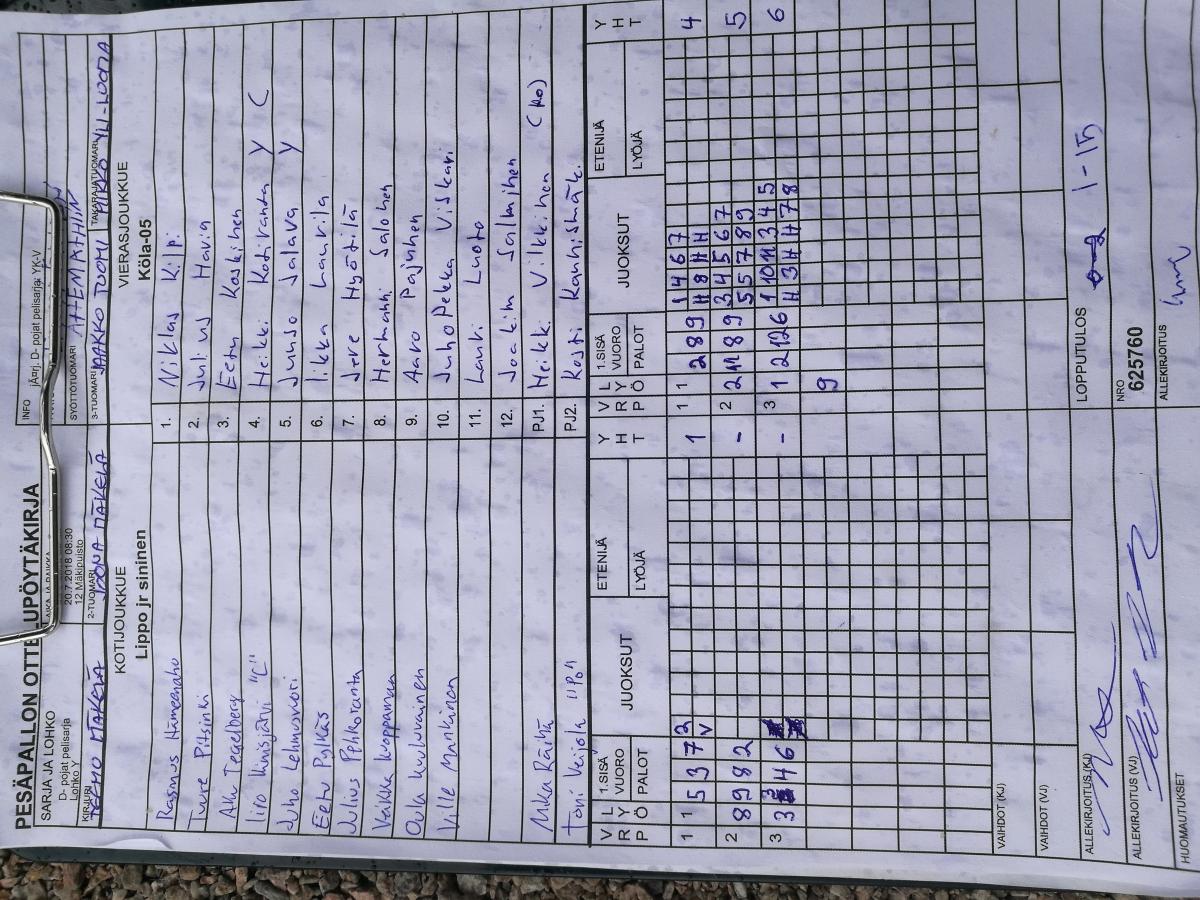 PESÄPALLON OTTELUPÖYTÄKIRJA
INFO
D- pojat pelisarja: YK-V
SARJA JA LOHKO
D- pojat pelisarja
Lohko Y
20.7.2018 08:30
12 Mäkipuisto
SYÖTTÖTUOMARI
KIRJURI
MÄKELÄ
2-TUOMARI
JOONA MÄKELÄ
3-TUOMARI
JAAKKO TUOMI
TAKARAJATUOMARI
MIKKO YLI-LUOMA
KOTIJOUKKUE
Lippo jr sininen
VIERASJOUKKUE
Köla-05
Rasmus Hämeenaho
1. Niklas Kilp.
Tuure Pitsinki
2. Julius Havia
Atte Tegelberg
3. Eetu Koskinen
Iiro Kinisjärvi "C"
4. Heikki Kotiranda Y C
Juho Lehmusvuori
5. Junso Jalava Y
Eetu Pylkäs
6. Iikka Laurila
Julius Pohkoranta
7. Jere Hyötylä
Veikka Koppanen
8. Hermanni Salonen
Oula Kuuluvainen
9. Aaro Pajunen
Ville Manninen
10. JuhoPekka Viskari
11. Lauri Luoto
12. Joakim Salminen
Mika Räihä
PJ1. Heikki Vilkkinen (Ro)
Toni Veijola "Po"
PJ2. Kosti Rauhismäk.
V R P
L Y Ö
1.SISÄ VUORO
PALOT
JUOKSUT
ETENIJÄ
LYÖJÄ
Y H T
V R P
L Y Ö
1.SISÄ VUORO
PALOT
JUOKSUT
ETENIJÄ
LYÖJÄ
Y H T
1 1 5 3 7 2 1
V
1 1 2 8 9 1 4 6 7 4
H 8 H H
2 8 9 8 2 -
2 2 11 8 9 3 4 5 6 7 5
5 5 7 8 9
3 3 4 6 -
3 1 2 12 6 1 10 11 3 4 5 6
H 3 H H 7 8
9
VAIHDOT (KJ)
VAIHDOT (VJ)
ALLEKIRJOITUS (KJ)
LOPPUTULOS
1-15
ALLEKIRJOITUS (VJ)
NRO
625760
HUOMAUTUKSET
ALLEKIRJOITUS